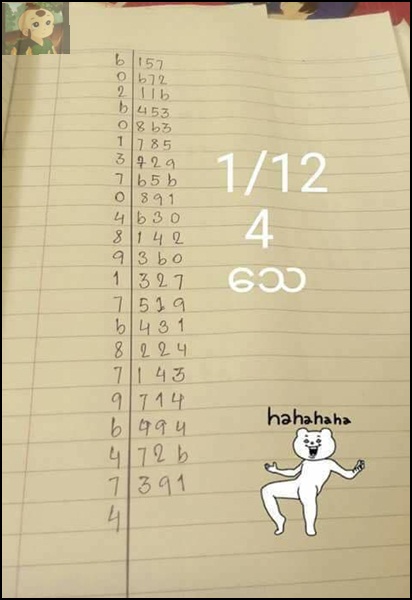 b 157
0 b72
2 11b
b 453
0 8b3
1 785
3 729
7 b5b
0 891
4 b30
8 142
9 3b0
1 327
7 519
b 431
8 224
7 143
9 714
b 494
4 72b
7 391
4
1/12
4
သေ
hahahaha